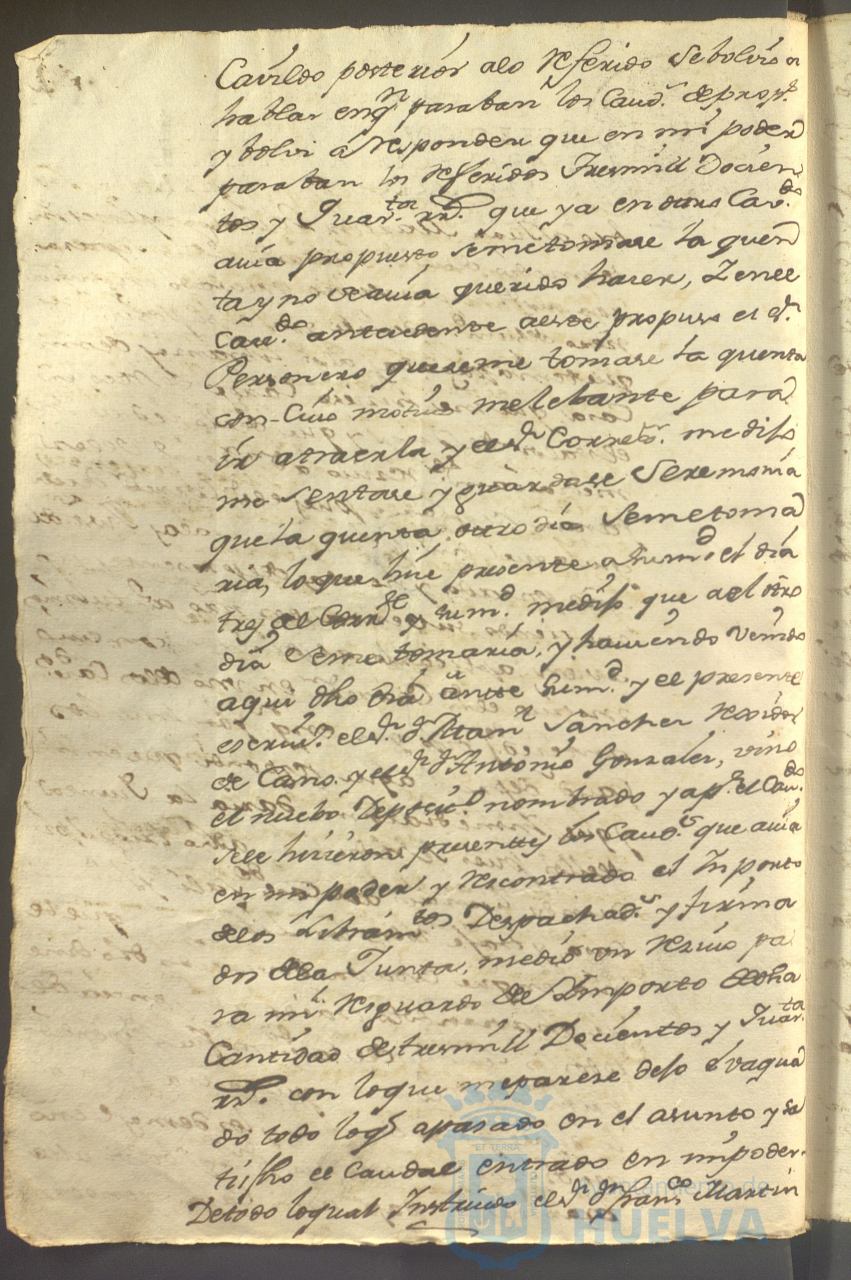 Cavildo posterior alo referido Sebolvio a
hablar enqn paraban los Caud.s deprop.s
y bolvi a Responder que en mi poder
paraban los Referidos Tresmill Docien
tos y Quar.ta rr.s que ya en otro Cav.do
avia propuesto semetomase la quen
ta y no seavia querido hacer, Zenel
Cav.do antecedente aeste propuso el S.r
Personero quese me tomase la quenta
con Cuio motivo me lebante para
ir atraerla y el S.r Correx.or me dijo
me sentase y guardase Seremonia
que la quenta otro dia Semetoma
ria, lo que fue presente asum.d el dia
tres de Corr.te y sum.d medijo que a el otro
dia seme tomaria, y haviendo Venido
aqui dho dia ante sum.d y el presente
escriv.no el S.r d.n Man.l Sanchez Rexidor
de Cano y el S.r d.n Antonio Gonzales, vino
el nuebo Deposit.o nombrado y ap.r el Cav.do
sele hicieron presentes los Caud.s que avia
en mi poder y Recontrado el Inporto
delos Libram.tos Despachad.s y firma
dos dela Junta, medio un Recivo pa
ra mi Resguardo del Importe dedha
Cantidad detresmill Docientos y Quar.ta
rr.s con loque meparese dejo evaqua
do todo loq.e apasado en el asunto y sa
tisfho el Caudal entrado en mi poder.
Detodo loqual Instruido el S.r d.n Fran.co Martin
Ayuntamiento de
HUELVA